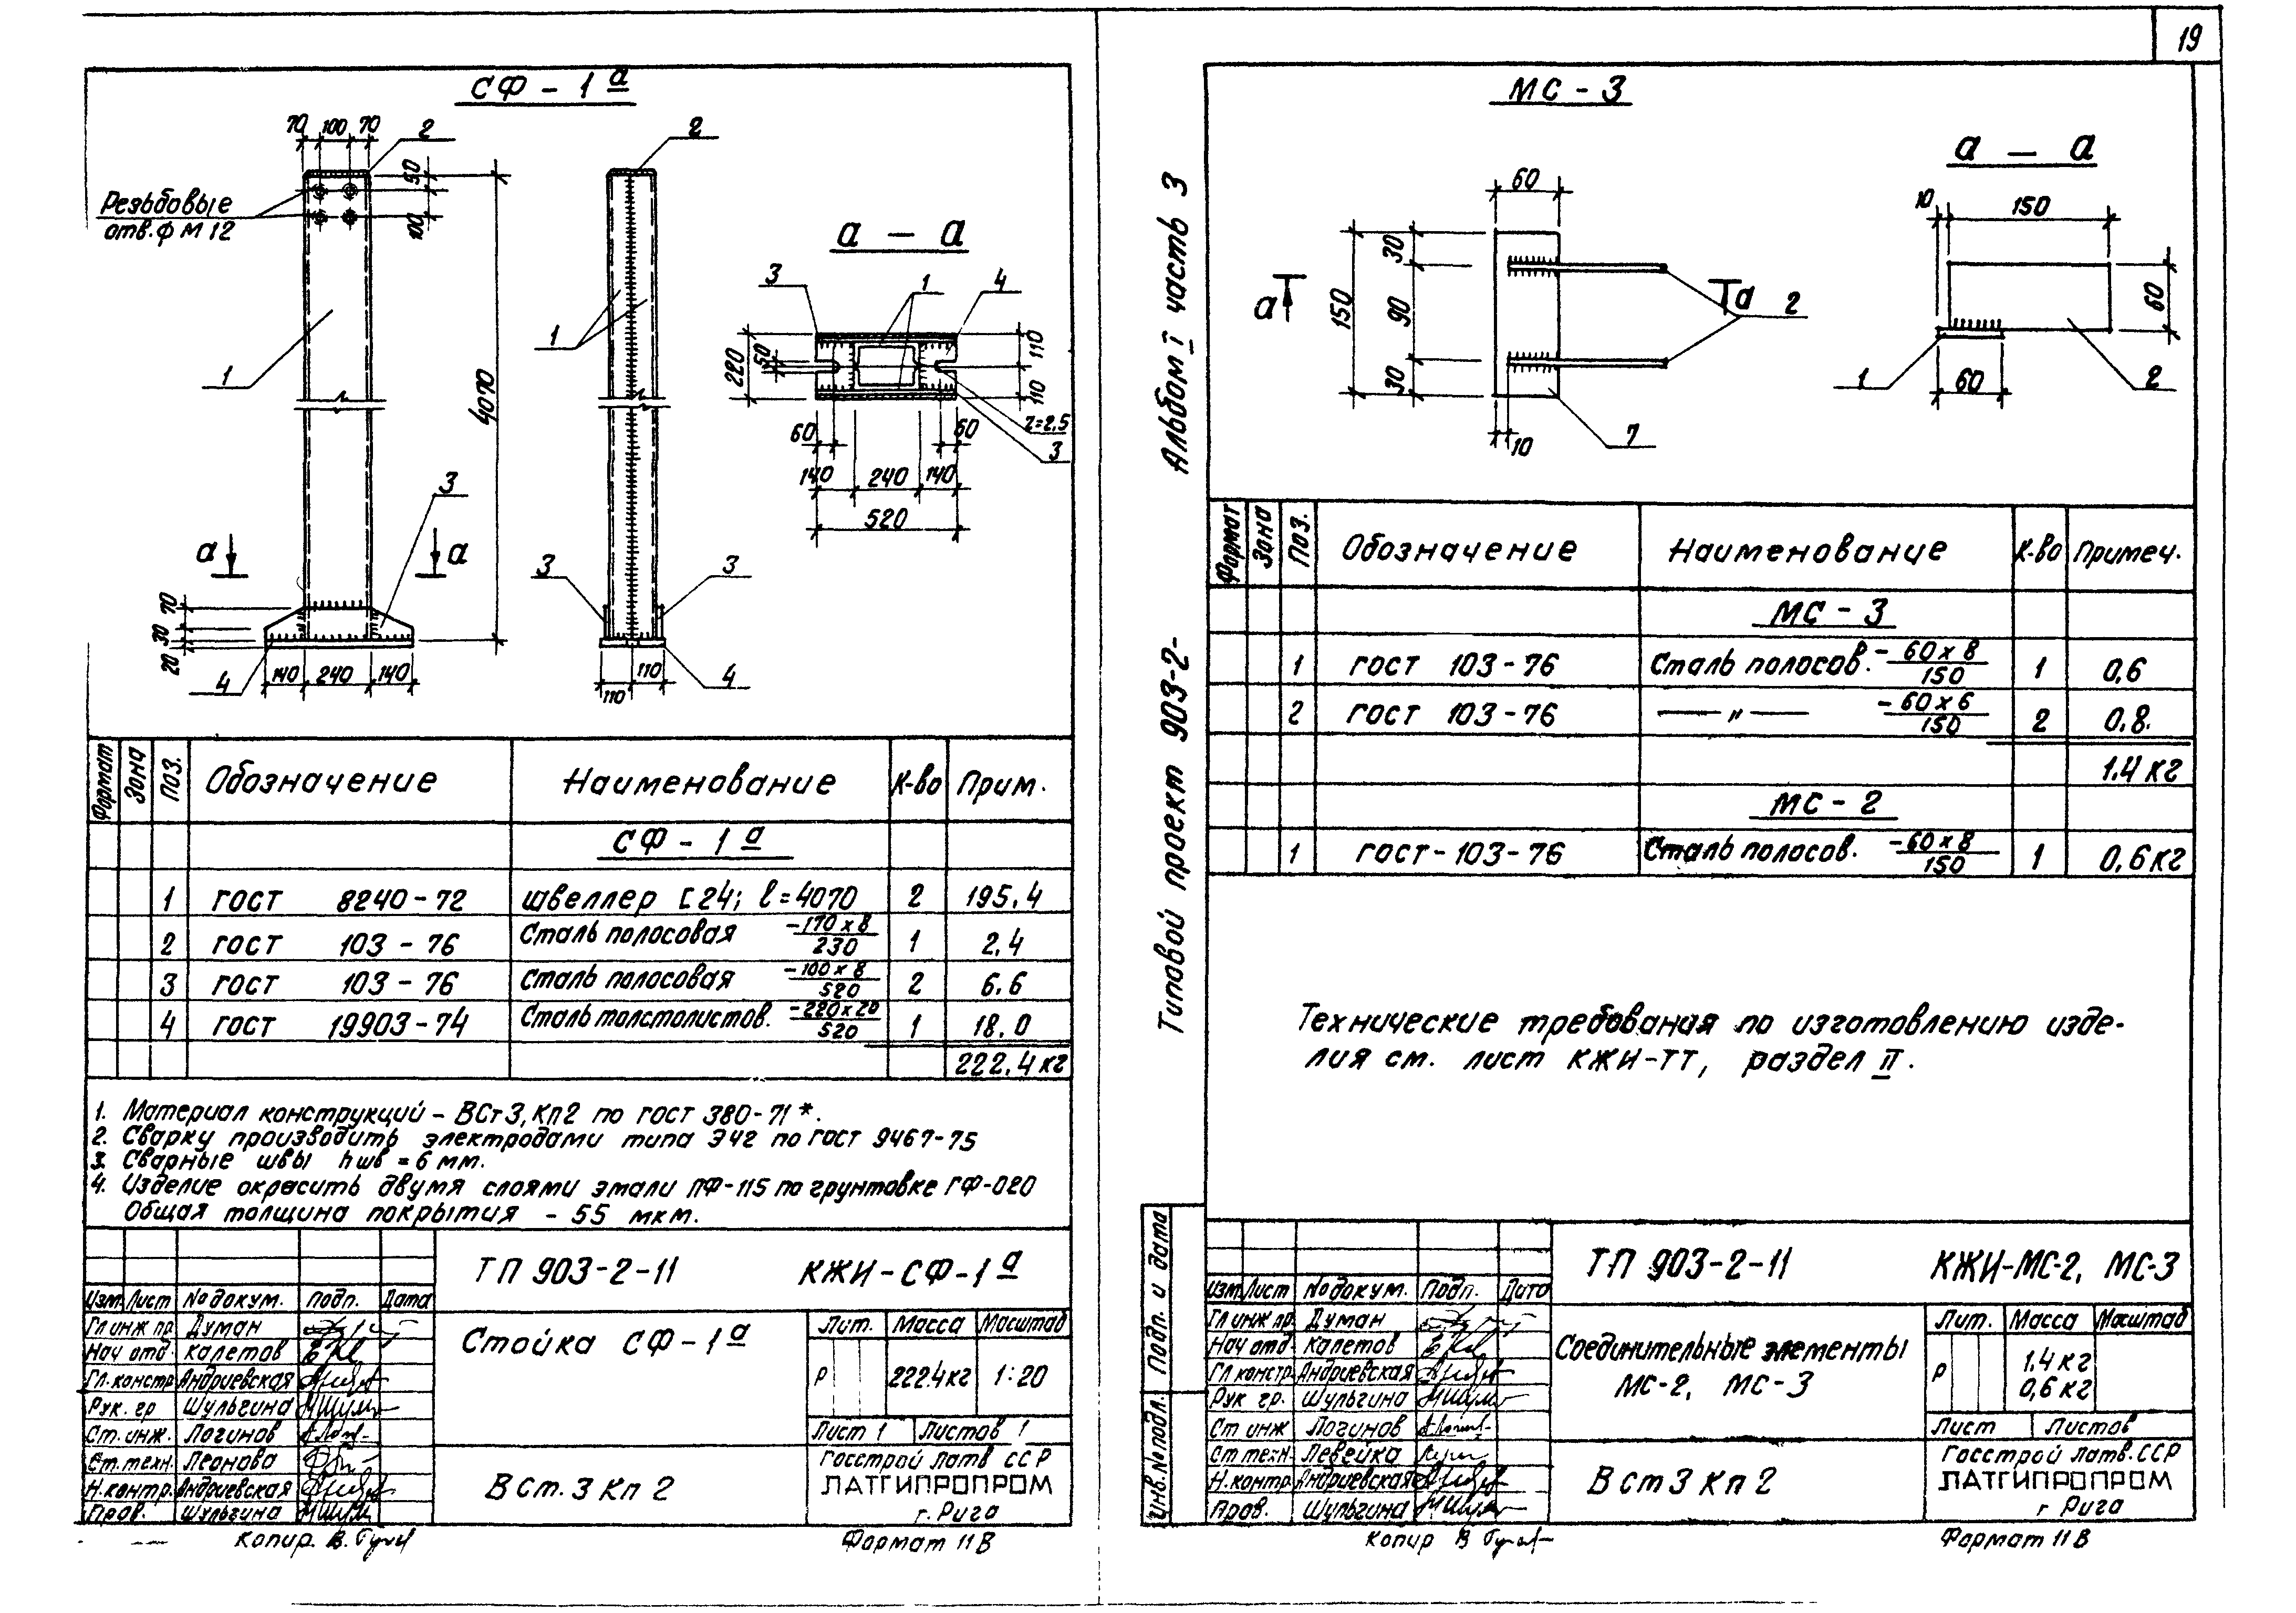 19
СФ - 1ª
70 100 70
2
50
100
Резьбовые
отв. ф М 12
1
4070
3
а
а
70
30
20
4
140 240 140
2
1
3
3
110
110
4
а - а
3
1
4
220
50
110
110
60
60
r=2,5
3
140 240 140
520
Формат Зона Поз. Обозначение Наименование К-во Прим.
СФ - 1ª
1 ГОСТ 8240-72 швеллер [24; ℓ=4070 2 195.4
2 ГОСТ 103-76 Сталь полосовая -170х8/230 1 2,4
3 ГОСТ 103-76 Сталь полосовая -100х8/520 2 6.6
4 ГОСТ 19903-74 Сталь толстолистов. -220х20/520 1 18.0
222.4 кг
1. Материал конструкций - ВСт3,Кп2 по ГОСТ 380-71*.
2. Сварку производить электродами типа Э42 по ГОСТ 9467-75
3. Сварные швы hшв = 6 мм.
4. Изделие окрасить двумя слоями эмали ПФ-115 по грунтовке ГФ-020
Общая толщина покрытия - 55 мкм.
ТП 903-2-11 КЖИ-СФ-1ª
Изм. Лист № докум. Подп. Дата
Гл инж пр. Думан
Нач отд. Калетов
Гл. констр. Андриевская
Рук. гр Шульгина
Ст. инж. Логинов
Ст. техн. Леонова
Н. контр. Андриевская
Пров. Шульгина
Стойка СФ-1ª
Лит. Масса Масштаб
Р 222.4кг 1:20
Лист 1 Листов 1
В Ст. 3 Кп 2
Госстрой Латв ССР
ЛАТГИПРОПРОМ
г. Рига
Копир. В.
Формат 11 В
Альбом I часть 3
Типовой проект 903-2-
Подп. и дата
Инв. № подл.
МС - 3
60
150
30
90
30
а
а
2
10
7
а - а
10
150
60
1
60
2
Формат Зона Поз. Обозначение Наименование К-во Примеч.
МС - 3
1 ГОСТ 103-76 Сталь полосов. -60х8/150 1 0,6
2 ГОСТ 103-76 — " — -60х6/150 2 0,8.
1.4 кг
МС - 2
1 ГОСТ-103-76 Сталь полосов. -60х8/150 1 0,6 кг
Технические требования по изготовлению изде-
лия см. лист КЖИ-ТТ, раздел II.
ТП 903-2-11 КЖИ-МС-2, МС-3
Изм. Лист № докум. Подп. Дата
Гл инж пр. Думан
Нач отд. Калетов
Гл констр. Андриевская
Рук гр. Шульгина
Ст инж Логинов
Ст техн. Левейка
Н. контр. Андриевская
Пров. Шульгина
Соединительные элементы
МС-2, МС-3
Лит. Масса Масштаб
Р 1.4 кг
0,6 кг
Лист Листов
В Ст 3 Кп 2
Госстрой Латв. ССР
ЛАТГИПРОПРОМ
г. Рига
Копир В
Формат 11 В